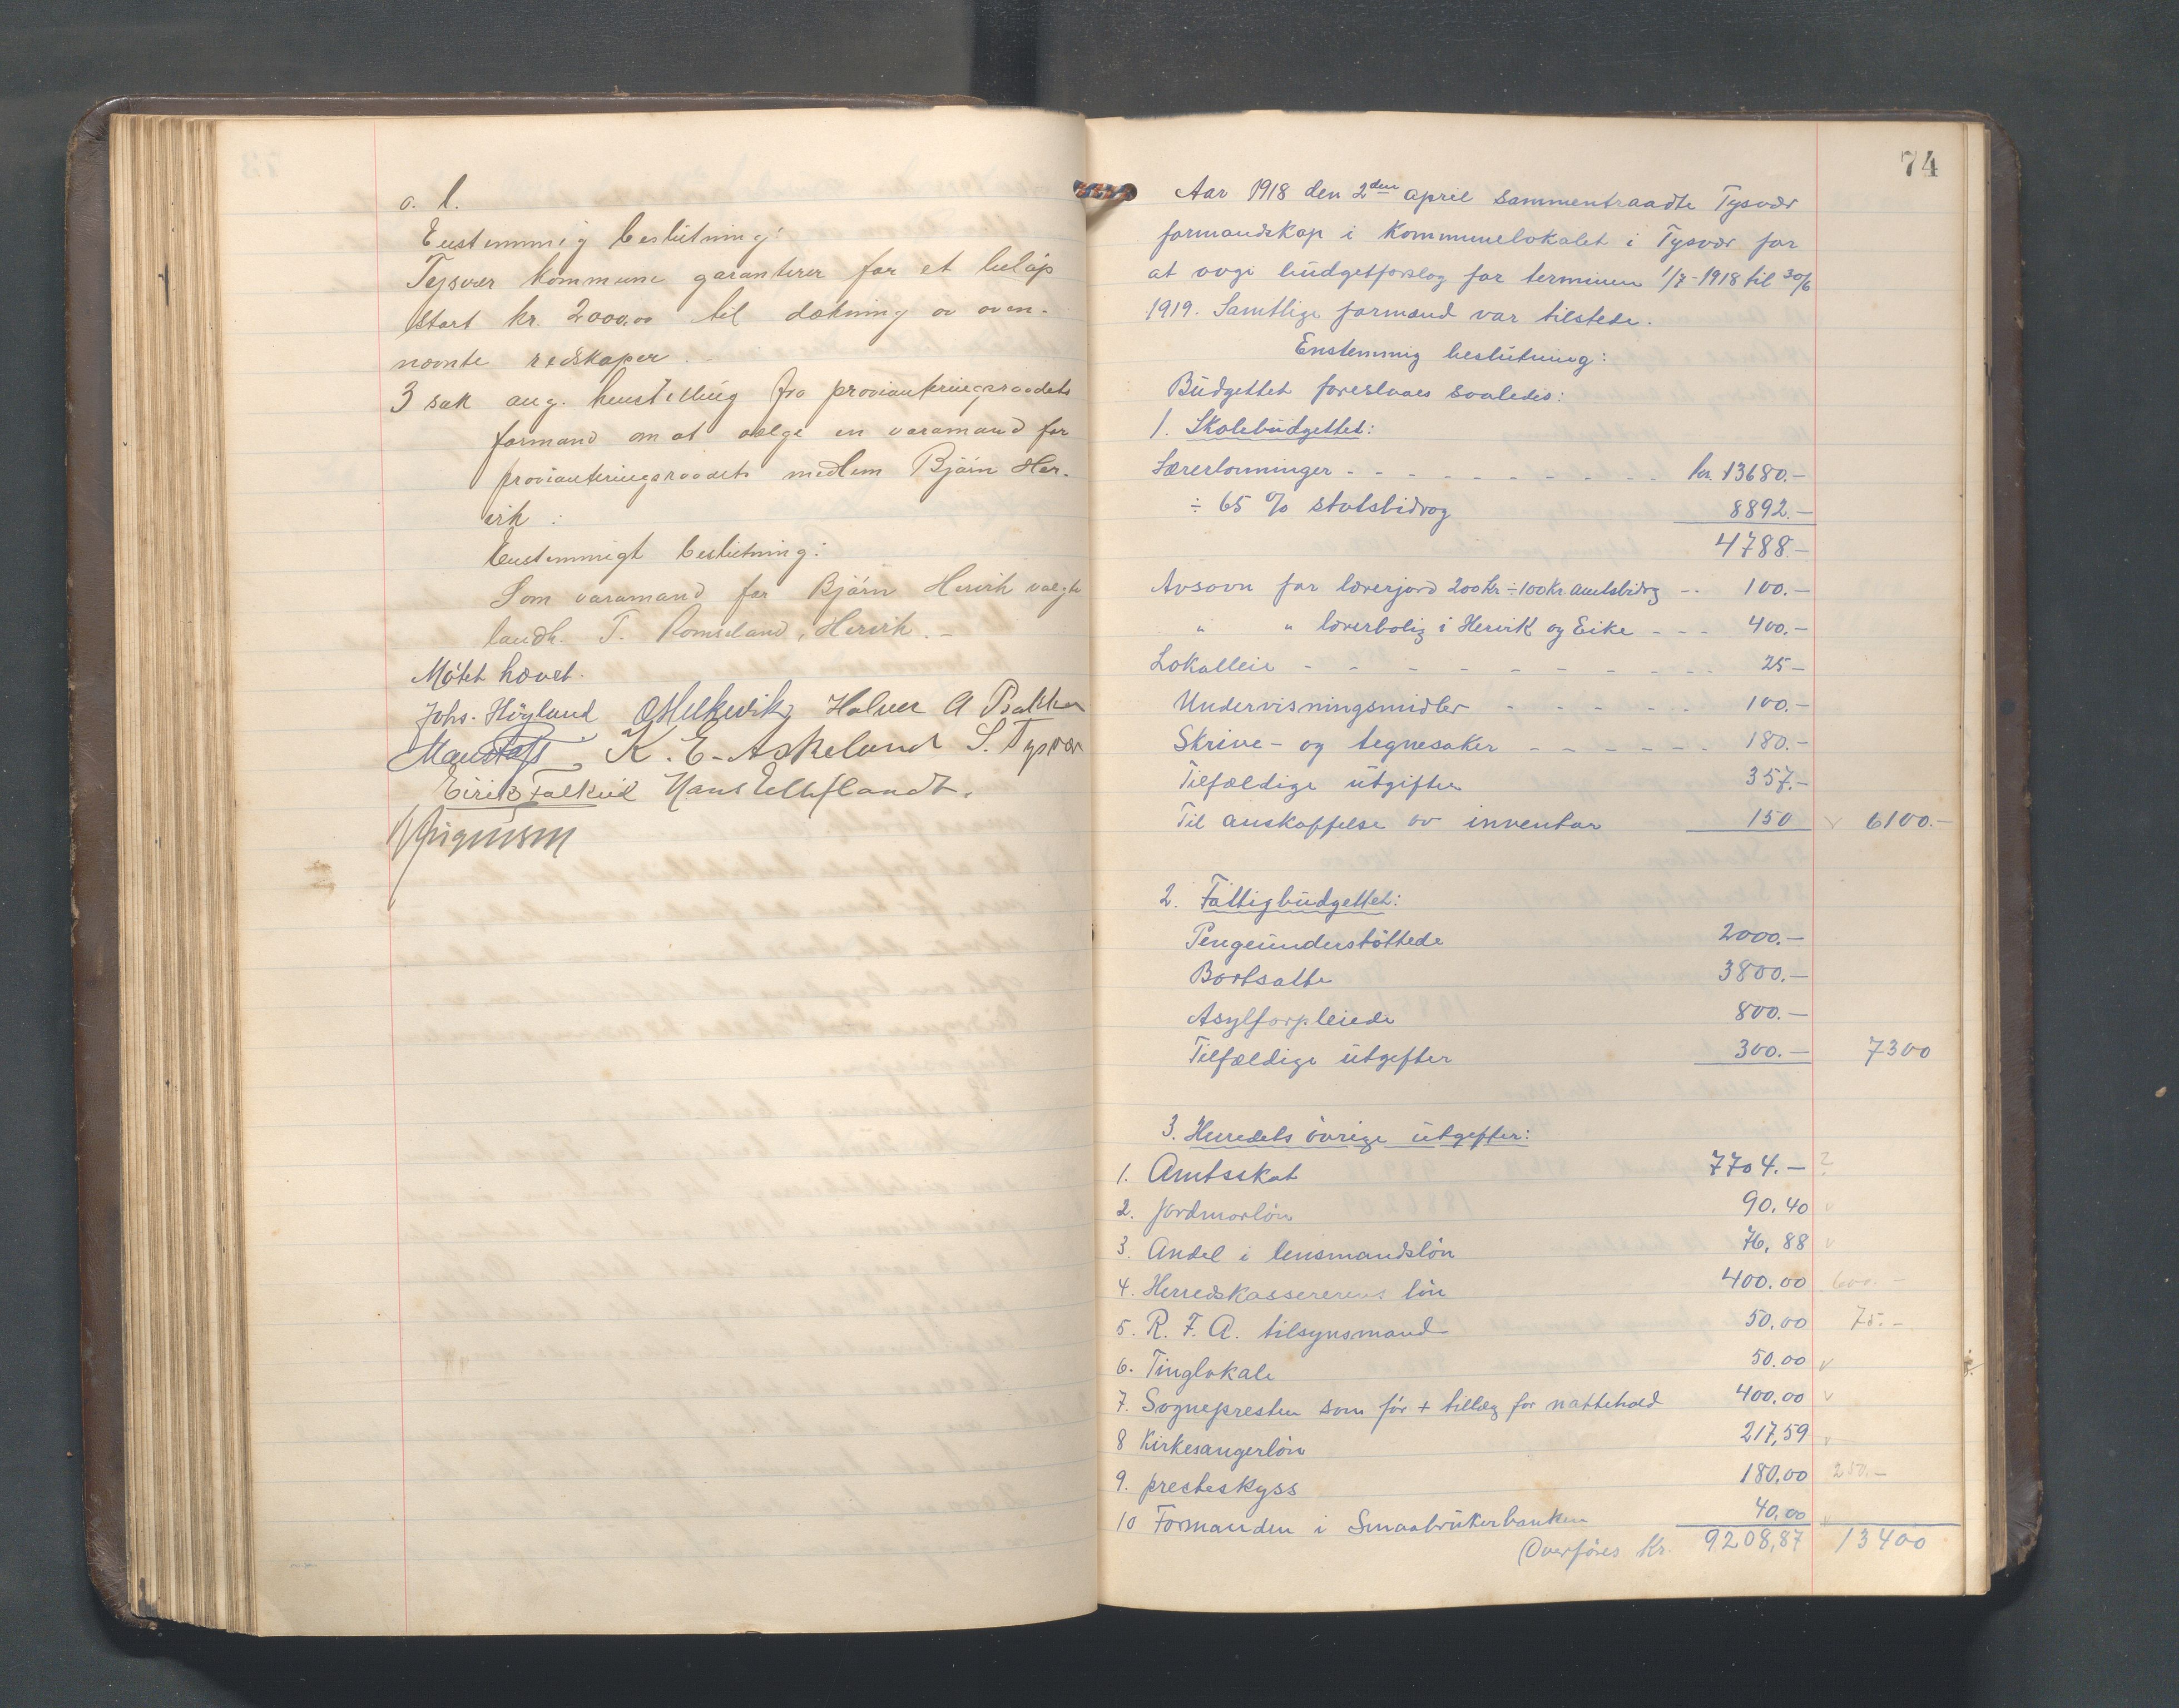 o. l.
Enstemmig beslutning:
Tysvær kommune garanterer for et belöp
stort kr. 2000,00 til dækning av oven-
nævnte redskaper.
3 sak ang. henstilling fra provianteringsraadets
formand om at vælge en varamand for
provianteringsraadets medlem Björn Her-
vik :
Enstemmigt beslutning:
Som varamand for Björn Hervik valgte
landh. T. Romseland, Hervik. –
Mötet hævet.
Johs. Höyland Halvor A Bakken
K. E. Askeland S. Tysvær
Eirik Falkeid Hans

74
Aar 1918 den 2den april sammentraadte Tysvær
formandskap i Kommunelokalet i Tysvær for
at avgi budgetforslag for terminen 1/7-1918 til 30/6
1919. Samtlige formænd var tilstede.
Enstemmig beslutning:
Budgettet foreslaaes saaledes:
1. Skolebudgettet:
Lærerlønninger - - - - - - - - kr. 13680.-
÷ 65 % statsbidrag 8892.-
4788.-
Avsavn for lærerjord 200 kr ÷ 100 kr amtsbidrag -- 100.-
" " lærerbolig i Hervik og Eike - - - 400.-
Lokalleie - - - - - - - - - - 25-
Undervisningsmidler - - - - - 100.-
Skrive- og tegnesaker - - - - - - 180.-
Tilfældige utgifter 357.-
Til anskaffelse av inventar 150 v 6100.-
2. Fattigbudgettet:
Pengeunderstöttede 2000.-
Bortsatte 3800.-
Asylforpleiede 800.-
Tilfældige utgifter 300.- 7300
3. Herredets övrige utgifter:
1. Amtsskat 7704.- ?
2. Jordmorlön 90.40 v
3. Andel i lensmandslön 76,88 v
4. Herredskassererens lön 400.00 600.-
5. R. F. A. tilsynsmand 50.00 75.-
6. Tinglokale 50.00 v
7. Sognepresten som för + tillæg for nattehold 400,00 v
8 Kirkesangerlön 217,59 v
9. presteskyss 180,00 250.-
10 Formanden i Smaabrukerbanken 40,00 v
Overföres Kr. 9208,87 13400